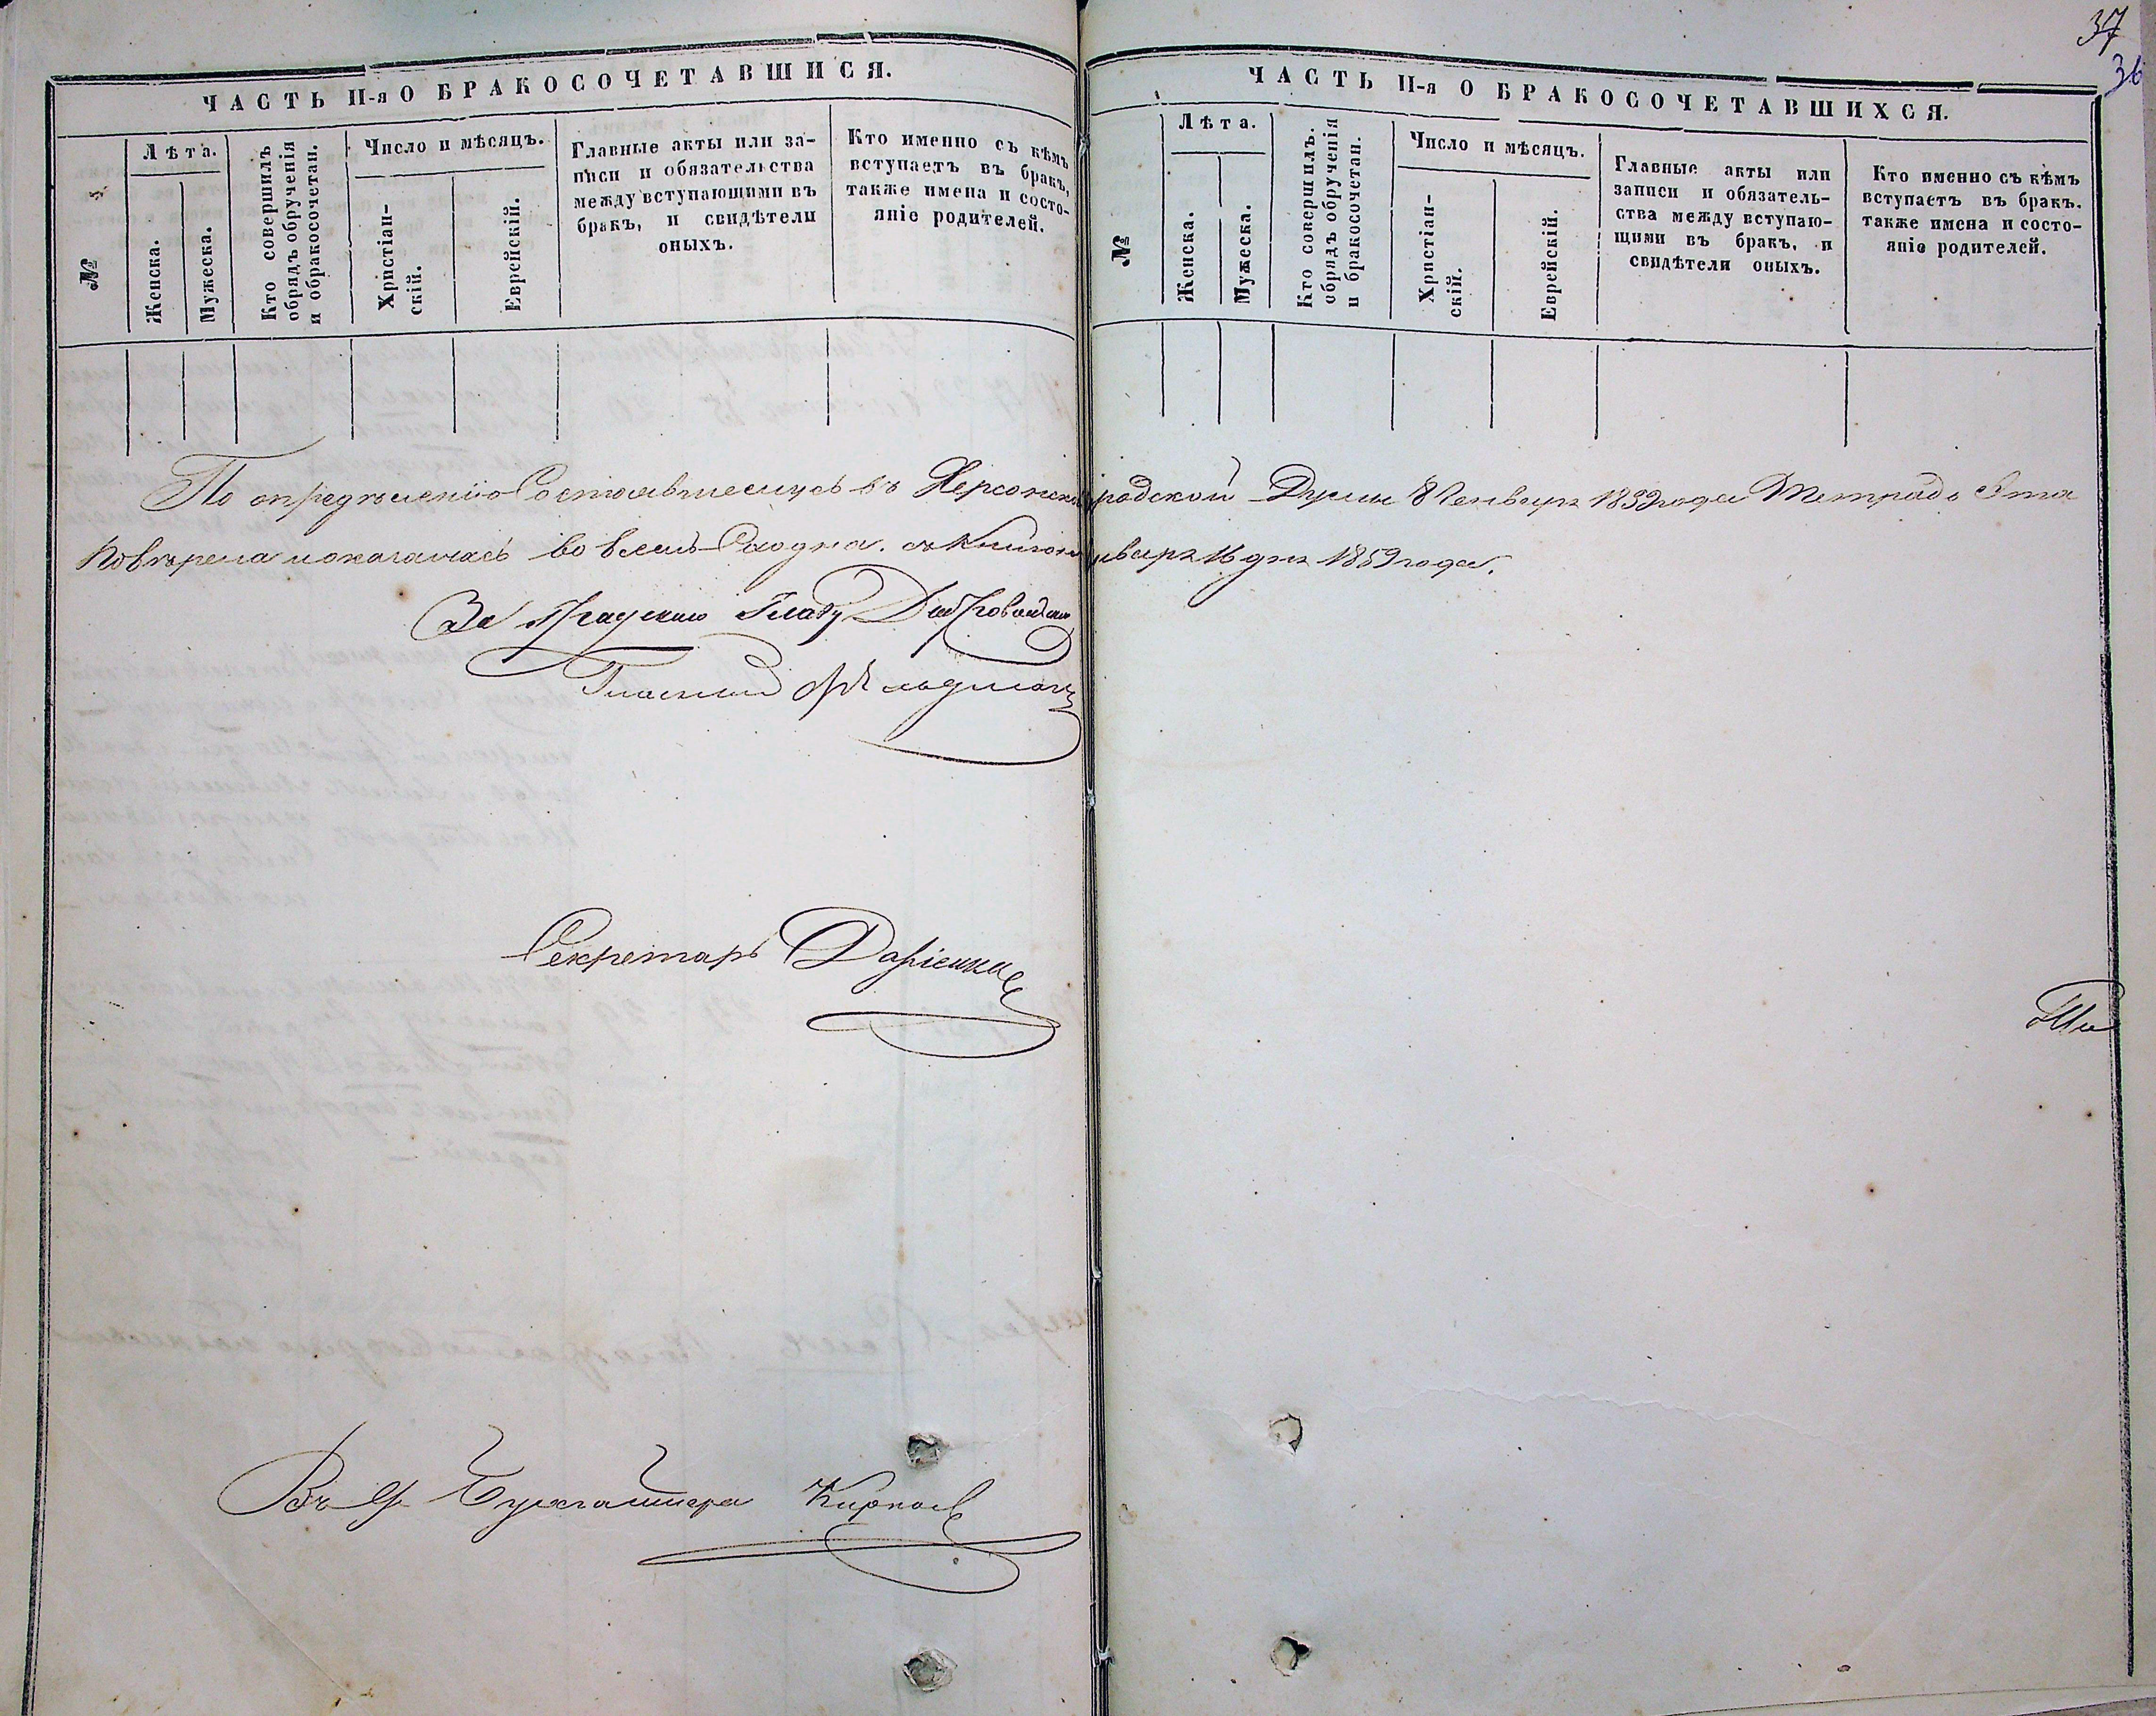 37
36
ЧАСТЬ II-я О БРАКОСОЧЕТАВШИСЯ.
№
Лѣта.
Женска.
Мужеска.
Кто совершилъ
обрядъ обрученія
и обракосочетан.
Число и мѣсяцъ.
Христіан-
скій.
Еврейскій.
Главные акты или за-
писи и обязательства
между вступающими въ
бракъ, и свидѣтели
оныхъ.
Кто именно съ кѣмъ
вступаетъ въ бракъ,
также имена и состо-
яніе родителей.
ЧАСТЬ II-я О БРАКОСОЧЕТАВШИХСЯ.
№
Лѣта.
Женска.
Мужеска.
Кто совершилъ.
обрядъ обрученія
и бракосочетан.
Число и мѣсяцъ.
Христіан-
скій.
Еврейскій.
Главные акты или
записи и обязатель-
ства между вступаю-
щими въ бракъ, и
свидѣтели оныхъ.
Кто именно съ кѣмъ
вступаетъ въ бракъ.
также имена и состо-
яніе родителей.
По опредѣленію Состоявшемуся въ Херсонской Градской Думы 8 Генваря 1859 года Тетрадь Эта
Повѣрена и оказалась во всемъ Сходна. съ Книгою Января 16 дня 1859 года.
За Градскаго Главу
Гласный Фельдманъ
Секретарь
Въ д. Бухгалтера